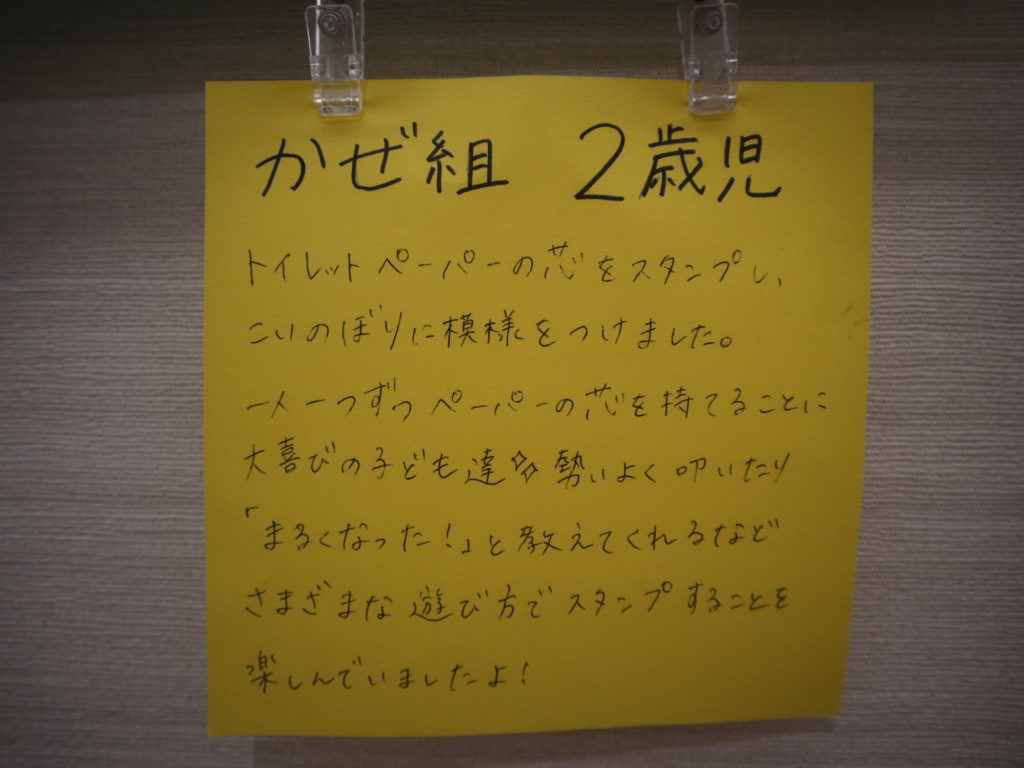 かぜ組 2歳児
トイレットペーパーの芯をスタンプし、
こいのぼりに模様をつけました。
一人一つずつペーパーの芯を持てることに
大喜びの子ども達☆☆勢いよく叩いたり
「まるくなった!」と教えてくれるなど
さまざまな遊び方でスタンプすることを
楽しんでいましたよ!